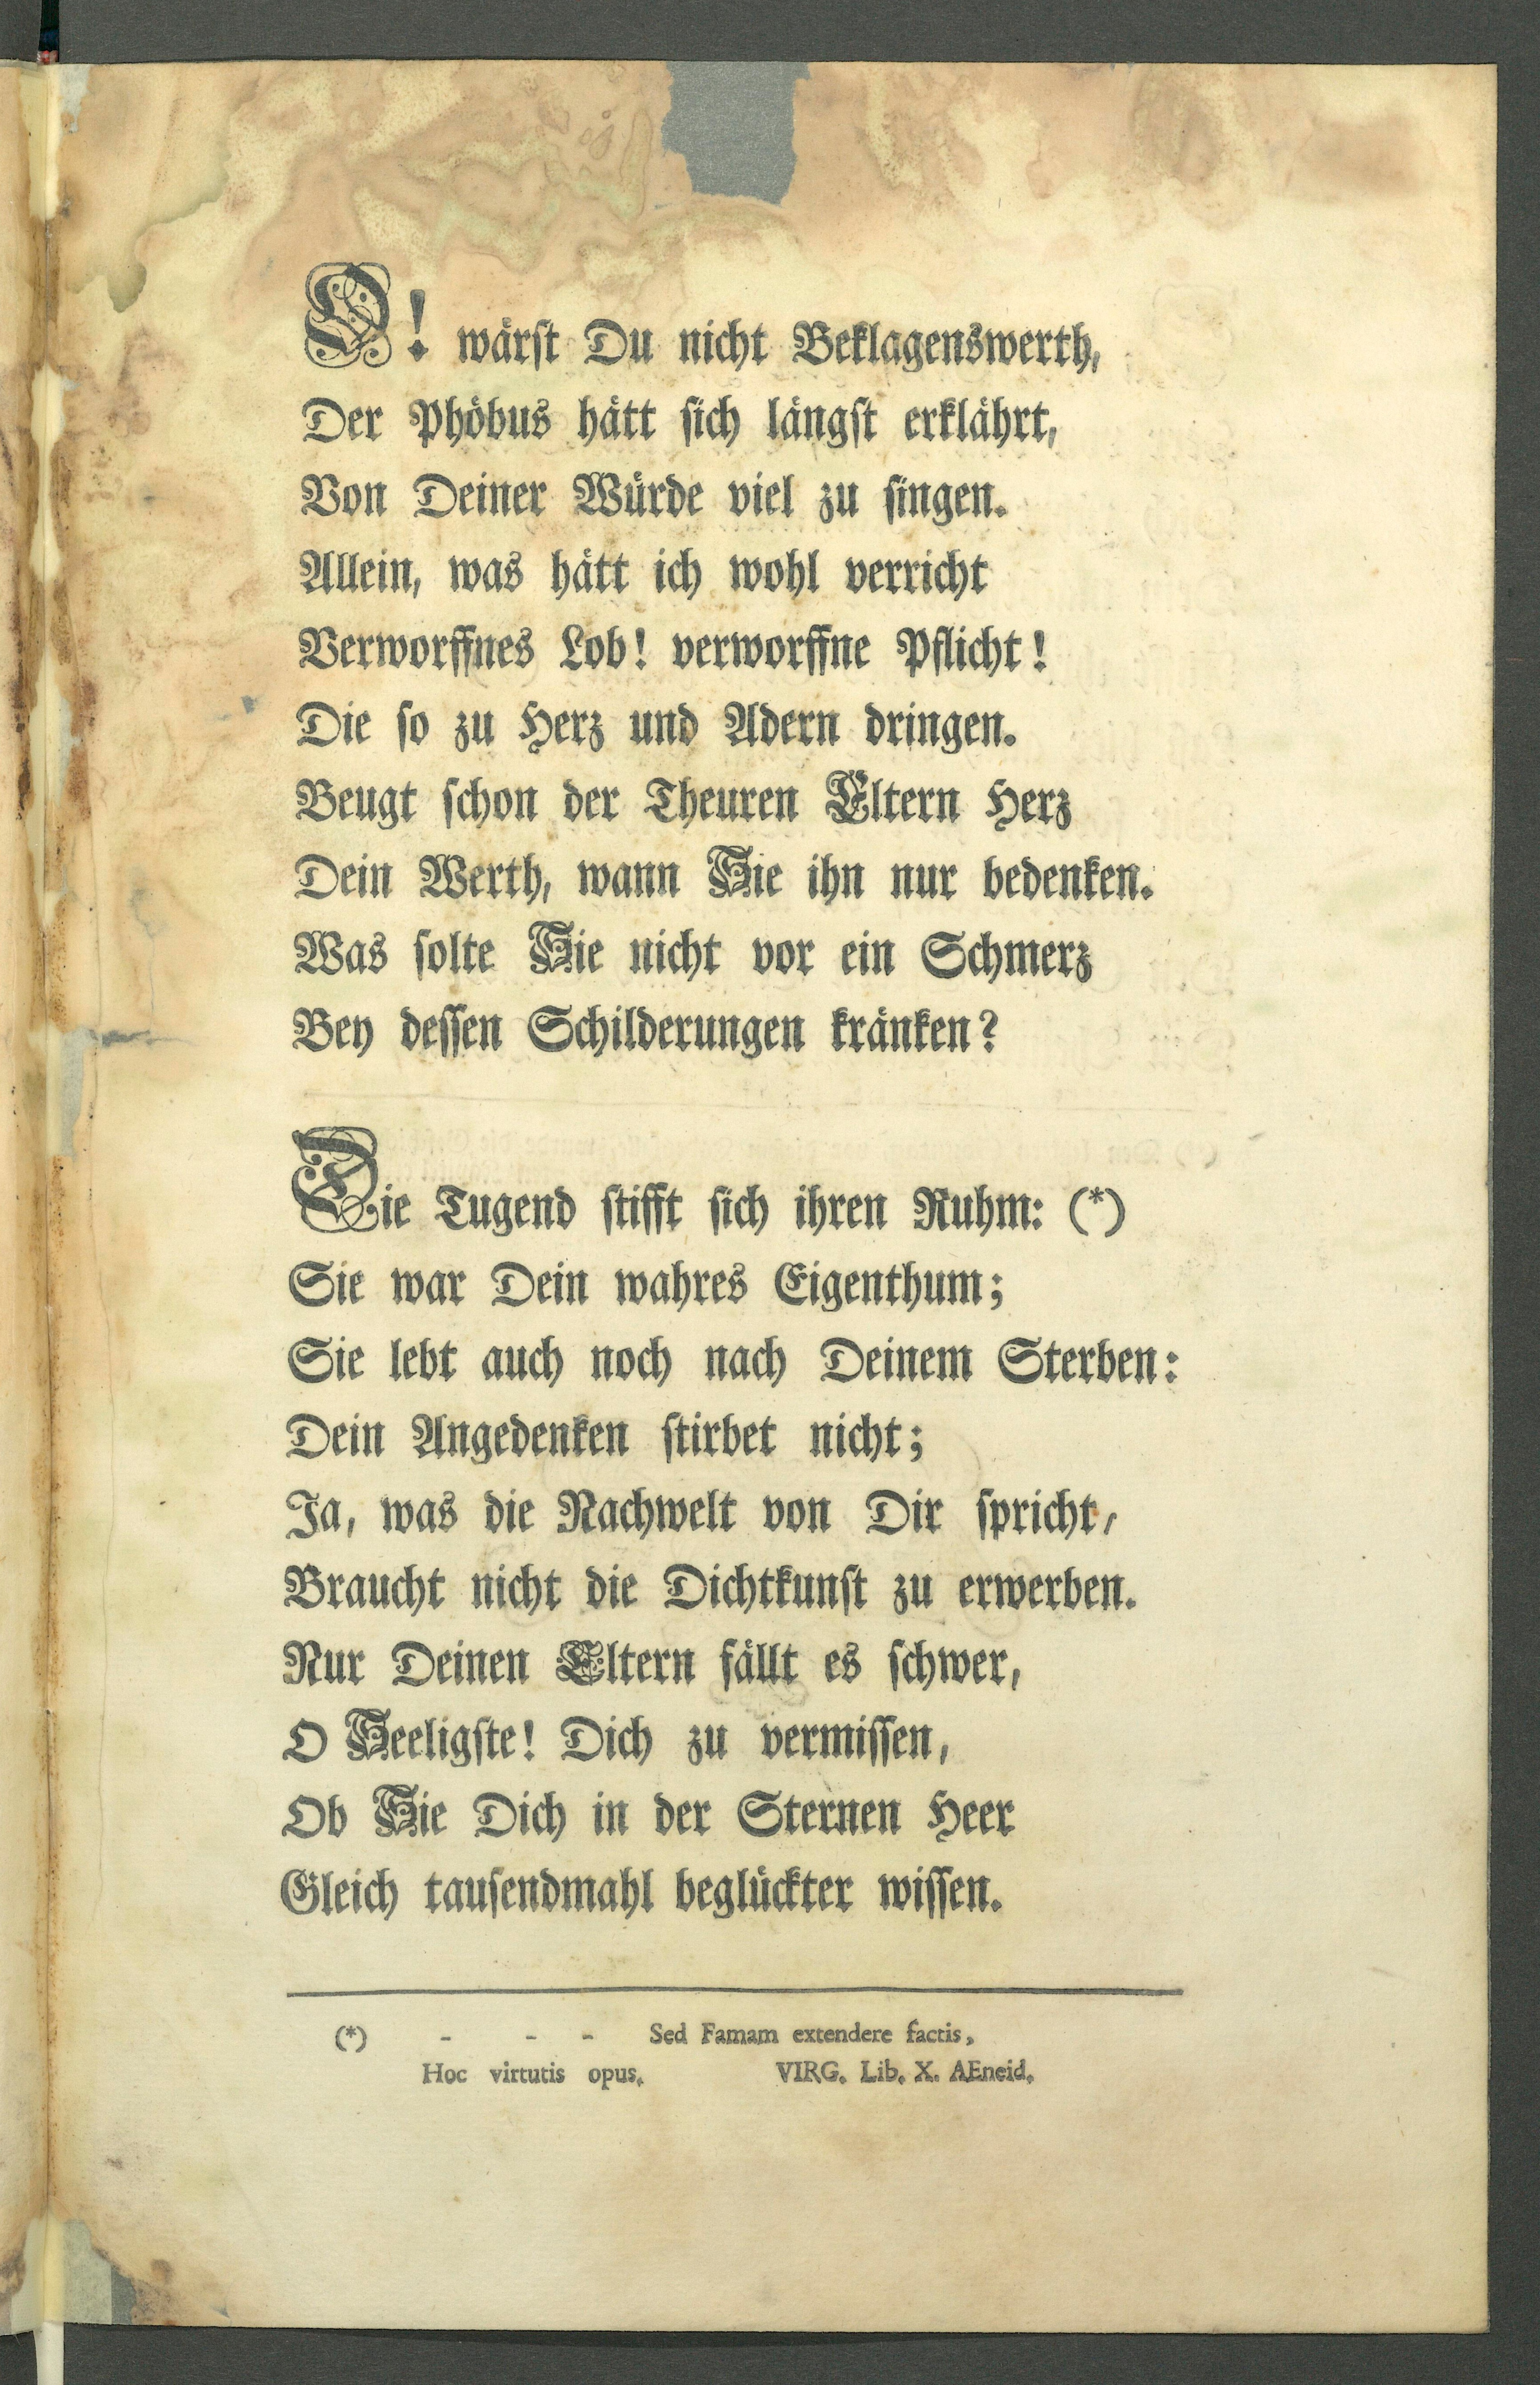 O! wärst Du nicht Beklagenswerth,
Der Phöbus hätt sich längst erklährt,
Von Deiner Würde viel zu singen.
Allein, was hätt ich wohl verricht
Verworffnes Lob! verworffne Pflicht!
Die so zu Herz und Adern dringen.
Beugt schon der Theuren Eltern Herz
Dein Werth, wann Sie ihn nur bedenken.
Was solte Sie nicht vor ein Schmerz
Bey dessen Schilderungen kränken?
Die Tugend stifft sich ihren Ruhm: (*)
Sie war Dein wahres Eigenthum;
Sie lebt auch noch nach Deinem Sterben:
Dein Angedenken stirbet nicht;
Ja, was die Nachwelt von Dir spricht,
Braucht nicht die Dichtkunst zu erwerben.
Nur Deinen Eltern fällt es schwer,
O Seeligste! Dich zu vermissen,
Ob Sie Dich in der Sternen Heer
Gleich tausendmahl beglückter wissen.
(*) - - - Sed Famam extendere factis,
Hoc virtutis opus. VIRG. Lib. X. AEneid.